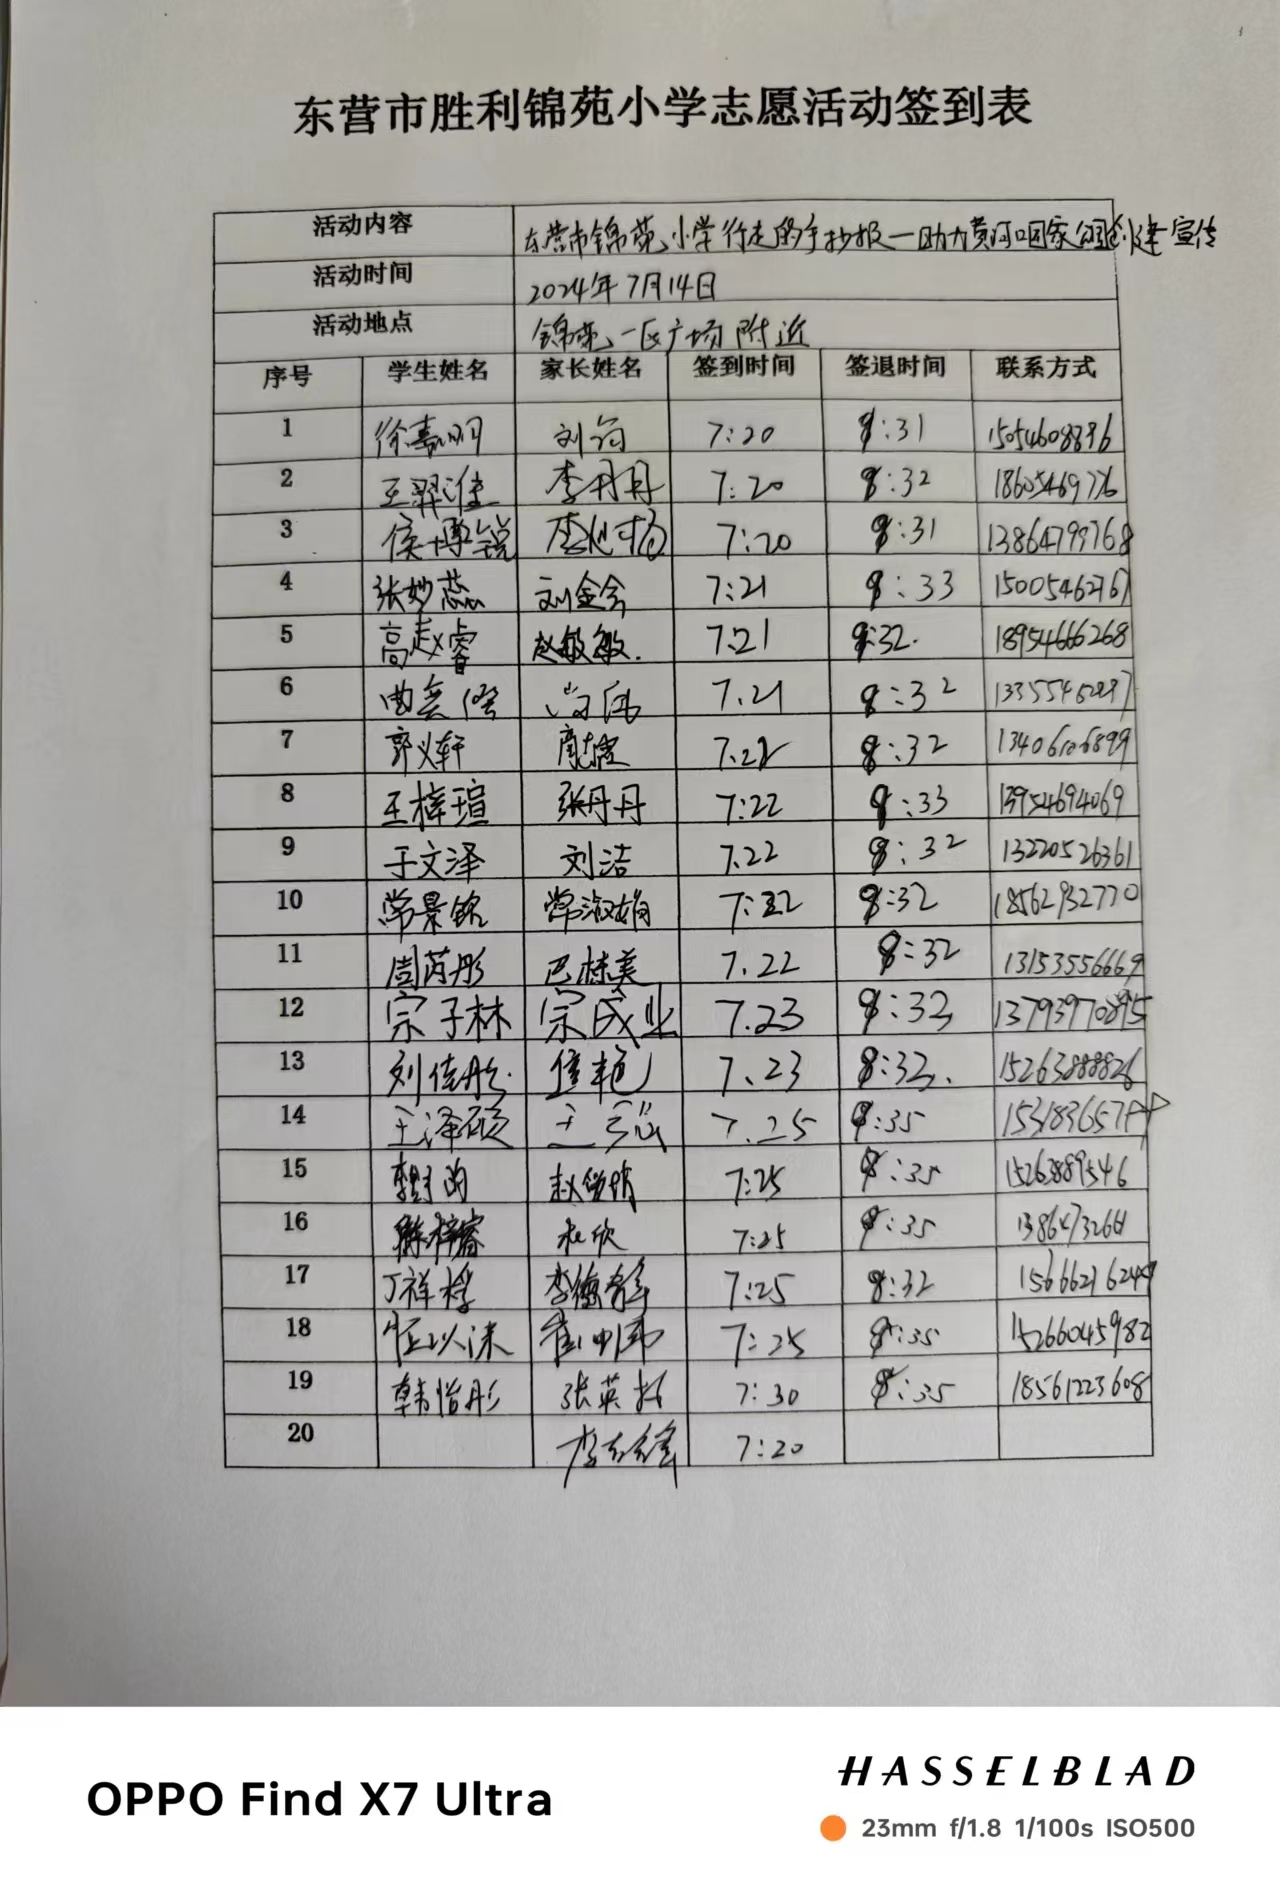 东营市胜利锦苑小学志愿活动签到表
活动内容 东营市锦苑小学行走的手抄报一助力黄河口国家公园创建宣传
活动时间 2024年7月14日
活动地点 锦苑一区广场附近
序号 学生姓名 家长姓名 签到时间 签退时间 联系方式
1 徐嘉明 刘 7:20 8:31
2 王翠淮 李丹丹 7:20 8:32
3 侯博锐 李 7:20 8:31 13864799768
4 张妙蕊 刘金会 7:21 8:33 15005462767
5 高赵睿 赵敏敏. 7:21 8:32. 18954666268
6 曲 7.21 8:32
7 郭义轩 7.22 8:32
8 王梓瑄 张丹丹 7:22 8:33 13954694069
9 于文泽 刘洁 7.22 8:32 13220526361
10 常景铭 常淑娟 7:22 8:32 18562932770
11 周芮彤 巴桂美 7.22 8:32 13153556669
12 宗子林 宗成业 7.23 8:32 13793970895
13 刘佳彤. 7.23 8:32. 15263888826
14 王泽硕 王 7.25 8:35
15 赵 7:25 8:35 15263889546
16 杜欣 7:25 8:35
17 丁祥梓 李德 7:25 8:32
18 以沫 崔 7:25 8:35 15266045982
19 韩怡彤 张英 7:30 8:35 18561223608
20 李 7:20
OPPO Find X7 Ultra
HASSELBLAD
23mm f/1.8 1/100s ISO500